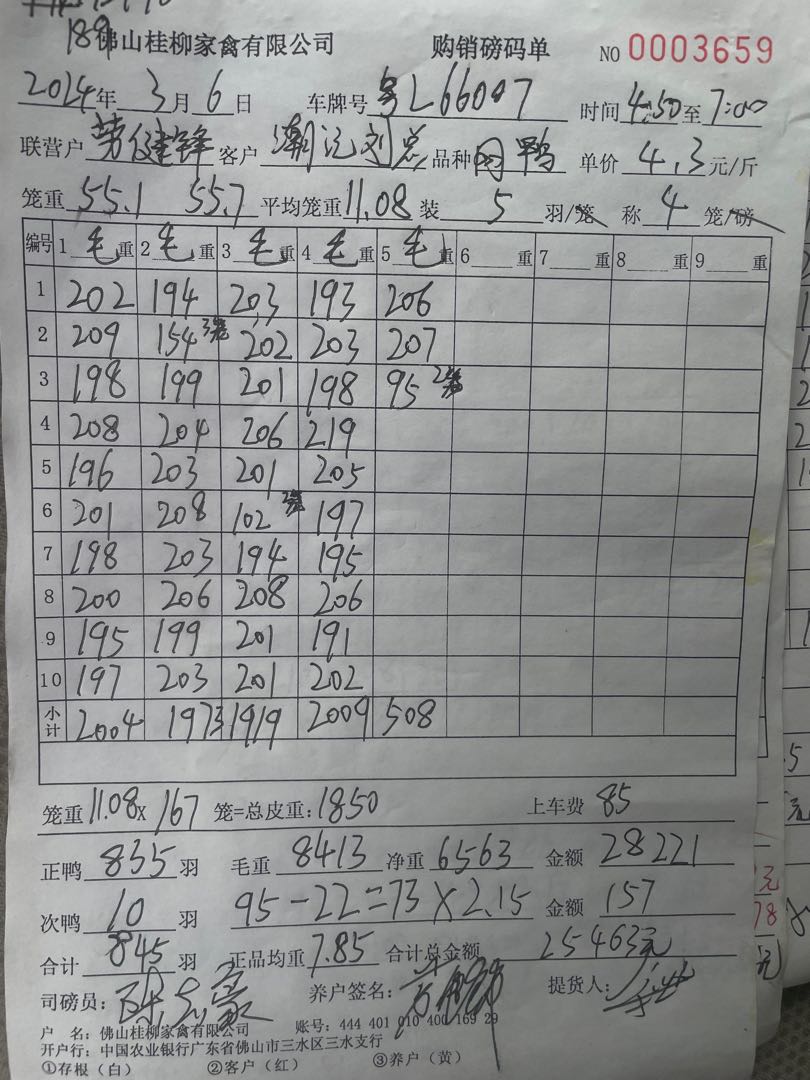 189
佛山桂柳家禽有限公司 购销磅码单 NO 0003659
2024年 3月 6日 车牌号 粤L66097 时间 4:50至 7:00
联营户 劳健锋 客户 刘总 品种 鸭 单价 4.3 元/斤
笼重 55.1 55.7 平均笼重 11.08 装 5 羽/笼 称 4 笼/磅
编号 1 毛 重 2 毛 重 3 毛 重 4 毛 重 5 毛 重 6 重 7 重 8 重 9 重
1 202 194 203 193 206
2 209 154 3笼 202 203 207
3 198 199 201 198 95 2笼
4 208 204 206 219
5 196 203 201 205
6 201 208 102 2笼 197
7 198 203 194 195
8 200 206 208 206
9 195 199 201 191
10 197 203 201 202
小计 2004 1973 1919 2009 508
笼重 11.08 × 167 笼=总皮重: 1850 上车费 85
正鸭 835 羽 毛重 8413 净重 6563 金额 28221
次鸭 10 羽 95-22=73×2.15 金额 157
合计 845 羽 正品均重 7.85 合计总金额 25463元
司磅员: 养户签名: 提货人:
户 名: 佛山桂柳家禽有限公司 账号: 444 401 010 400 169 29
开户行: 中国农业银行广东省佛山市三水区三水支行
①存根(白) ②客户(红) ③养户(黄)